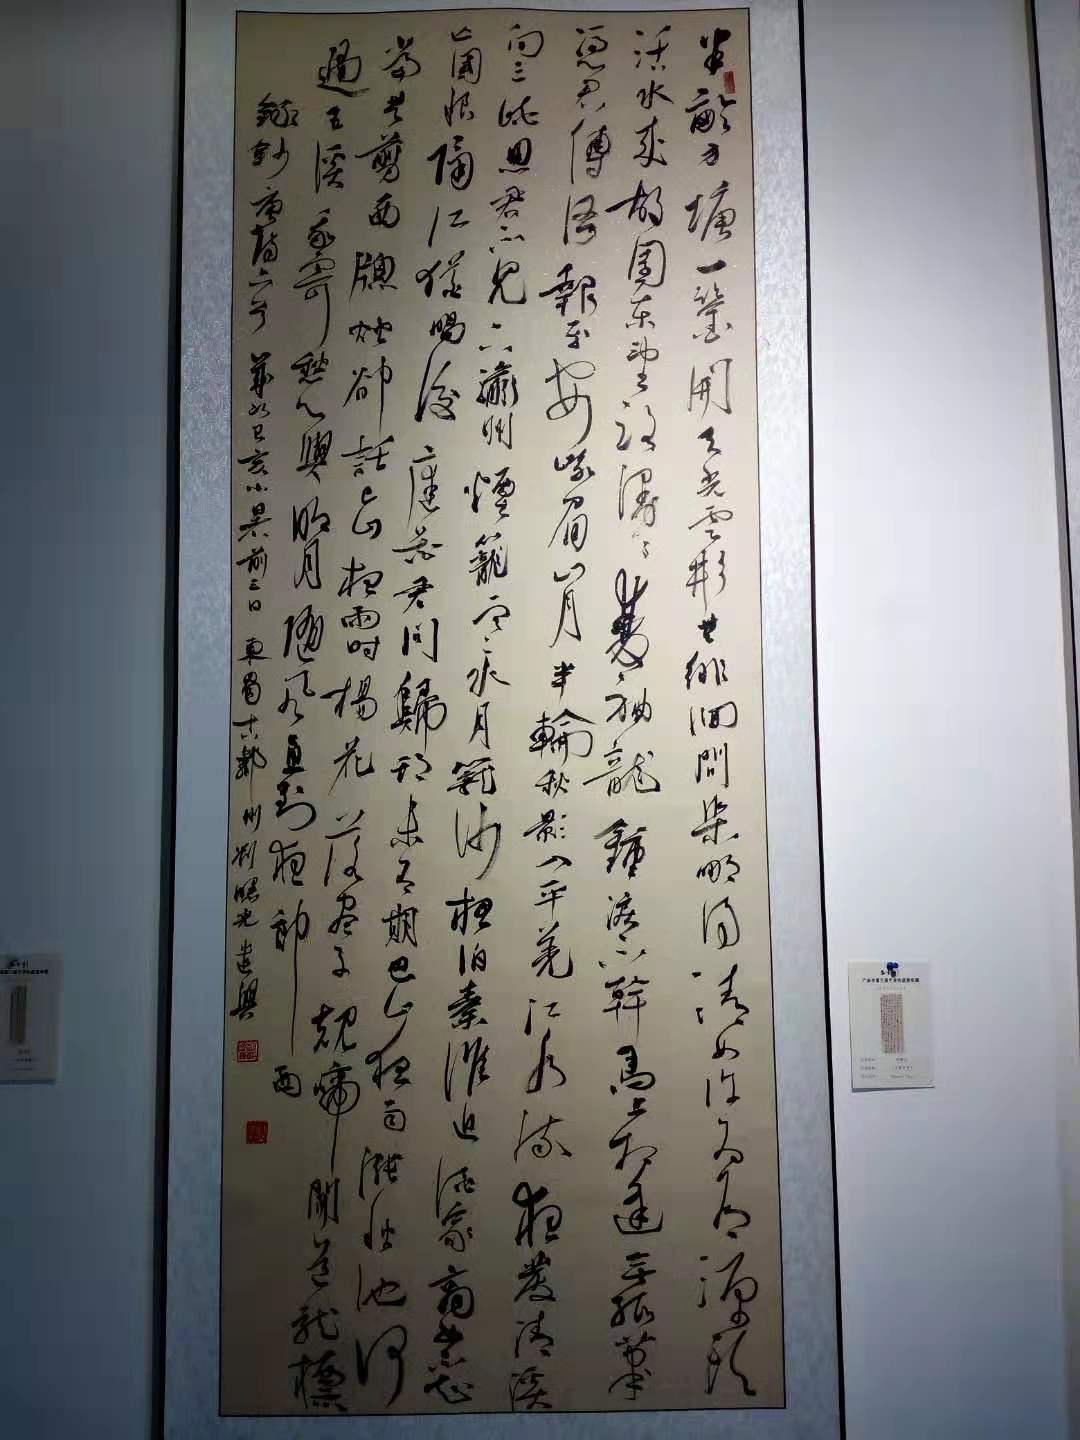 半畝方塘一鑒開天光雲影共徘徊問渠那得清如許為有源頭
活水來故園東望路漫々雙袖龍鍾淚不幹馬上相逢無紙筆
憑君傳語報平安峨眉山月半輪秋影入平羌江水流夜發清溪
向三峽思君不見下瀛州煙籠寒水月籠沙夜泊秦淮近酒家商女不知
亡國恨隔江猶唱後庭花君問歸期未有期巴山夜雨漲秋池何
當共剪西牕燭卻話巴山夜雨時楊花落盡子規啼聞道龍標
過五溪我寄愁心與明月隨風直到夜郎西
錄鈔唐詩六首 己亥小暑前三日 東蜀古鄰州劉曙光遣興